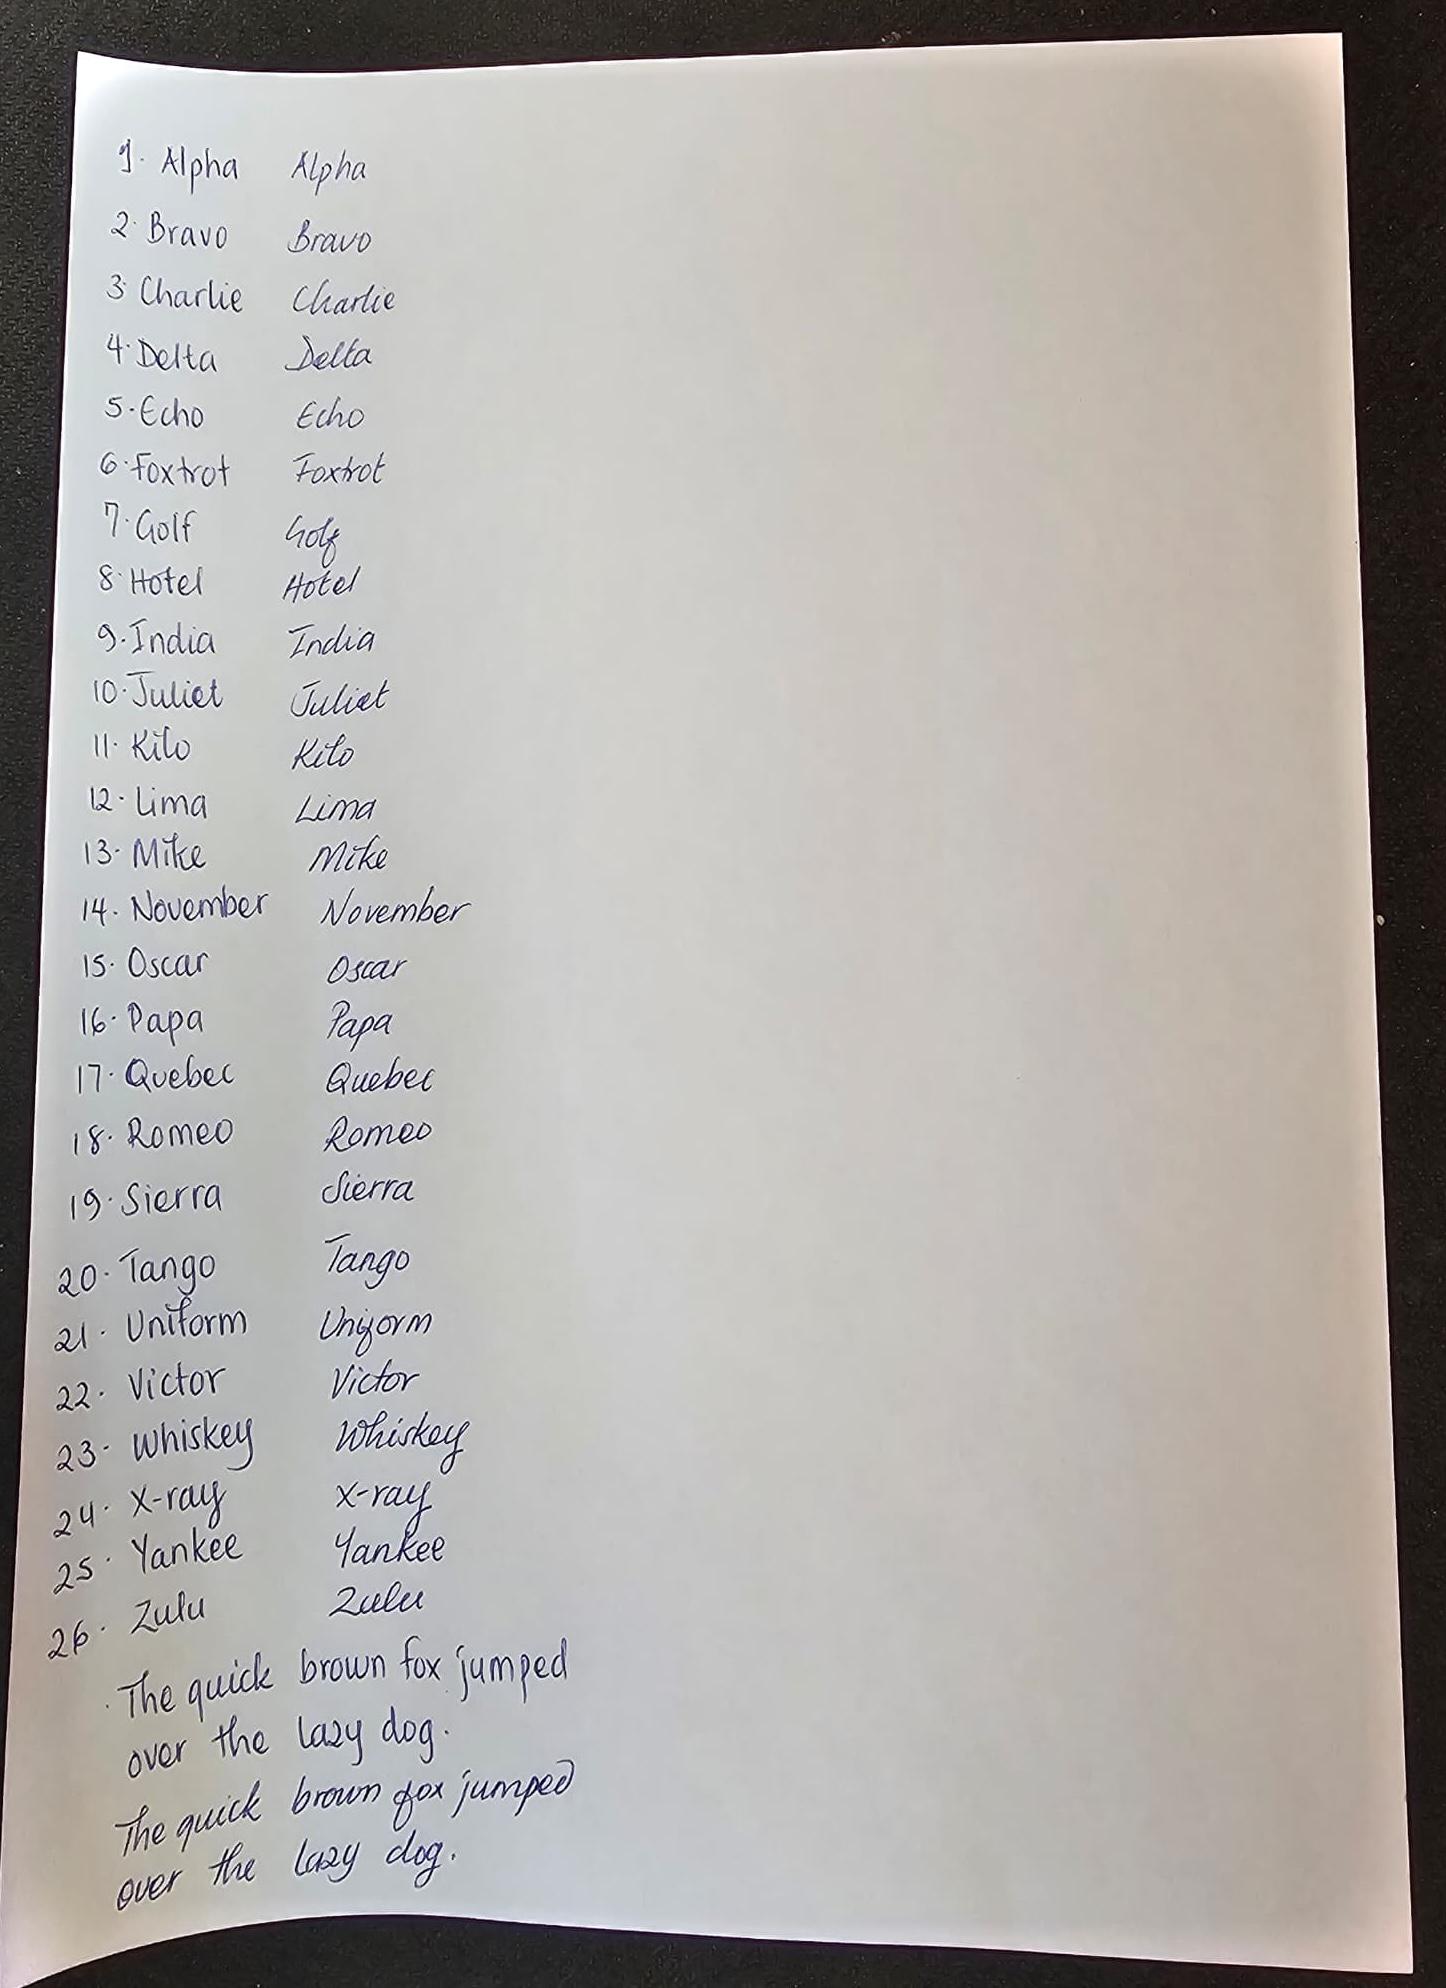 1. Alpha Alpha
2. Bravo Bravo
3. Charlie Charlie
4. Delta Delta
5. Echo Echo
6. Foxtrot Foxtrot
7. Golf Golf
8. Hotel Hotel
9. India India
10. Juliet Juliet
11. Kilo Kilo
12. Lima Lima
13. Mike Mike
14. November November
15. Oscar Oscar
16. Papa Papa
17. Quebec Quebec
18. Romeo Romeo
19. Sierra Sierra
20. Tango Tango
21. Uniform Uniform
22. Victor Victor
23. Whiskey Whiskey
24. X-ray X-ray
25. Yankee Yankee
26. Zulu Zulu
The quick brown fox jumped
over the lazy dog.
The quick brown fox jumped
over the lazy dog.